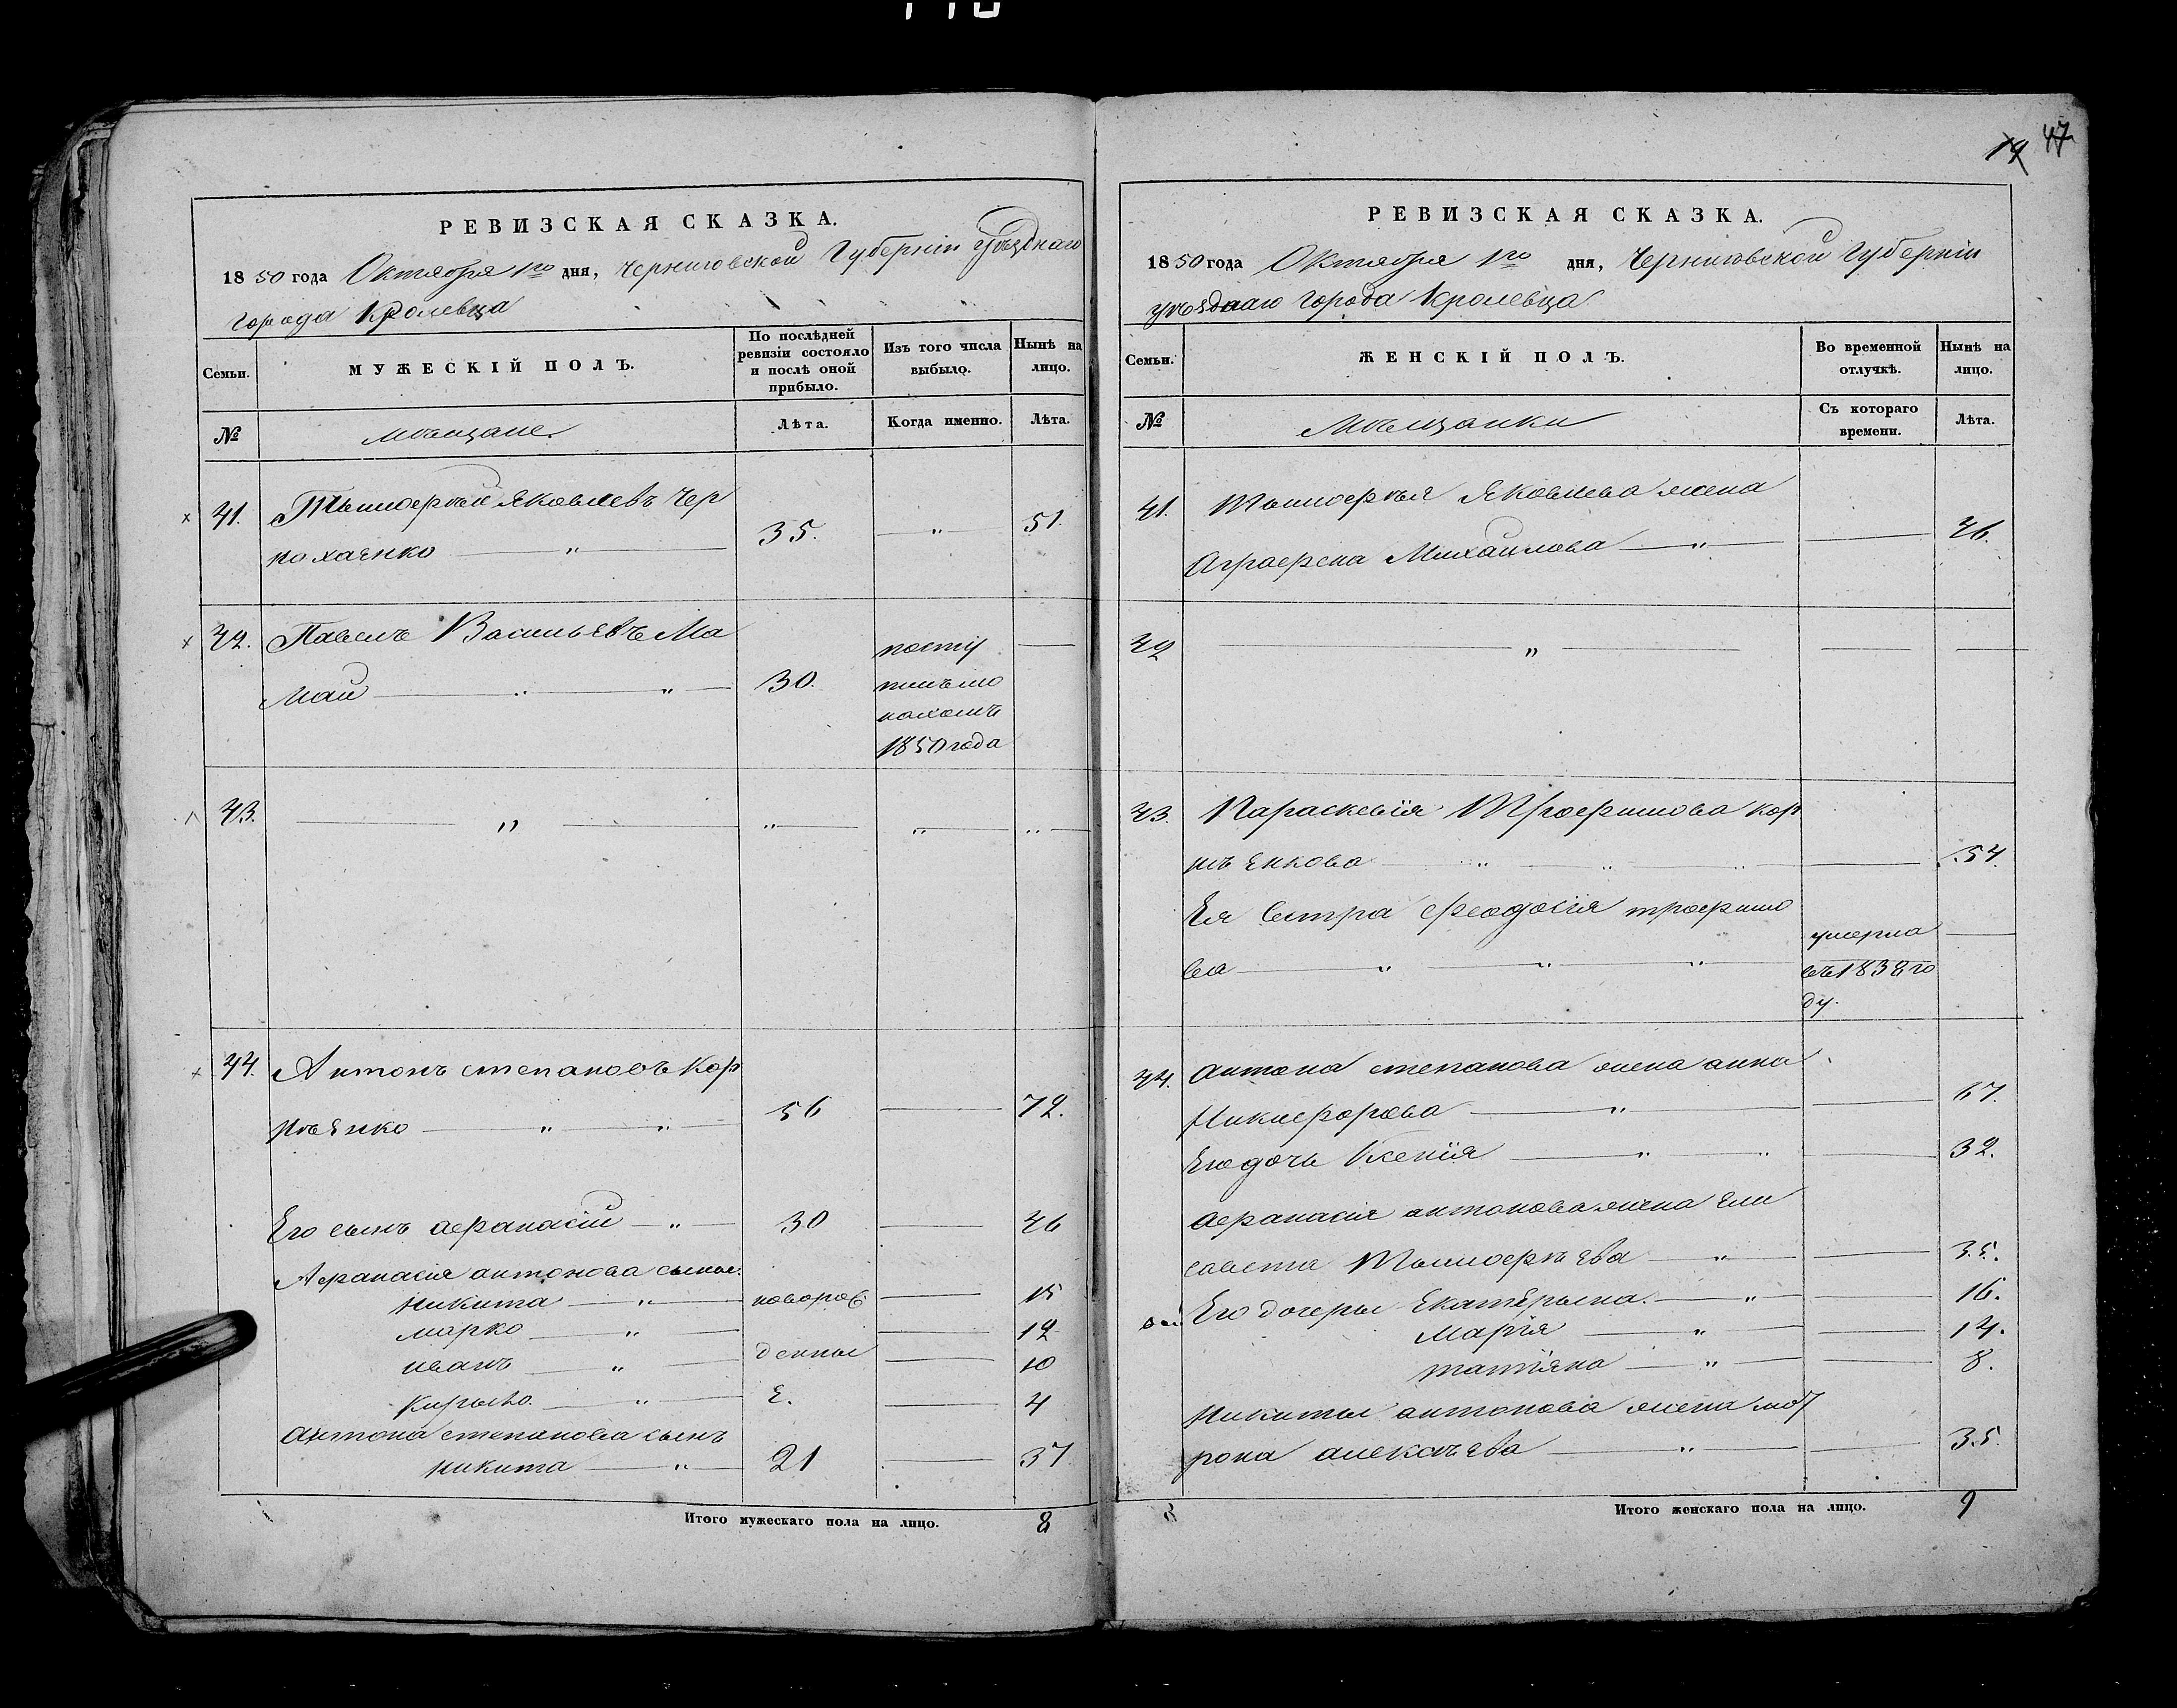 47
19
РЕВИЗСКАЯ СКАЗКА.
1850 года Октября 1го дня, Черниговской Губерніи Уѣзднаго
города Кролевца
Семьи.
МУЖЕСКІЙ ПОЛЪ.
По послѣдней ревизіи состояло и послѣ оной прибыло.
Изъ того числа выбыло.
Нынѣ на лицо.
№
мѣщане.
Лѣта.
Когда именно.
Лѣта.
41. Тимофѣй Яковлевъ Чер
нохаенко 35. 51.
42. Павелъ Васильевъ Ма
май 30.
посту
1850 года
43.
44. Антонъ степановъ Кор
нѣенко 56 72.
Его сынъ афанасій 30 46
Афанасія антонова сыны:
Никита новорож 15
марко 12
иванъ денны 10
Кирыло Е. 4
Антона степанова сынъ
никита 21 37
Итого мужескаго пола на лицо. 8
РЕВИЗСКАЯ СКАЗКА.
1850 года Октября 1го дня, Черниговской Губерніи
уѣзднаго города Кролевца
Семьи.
ЖЕНСКІЙ ПОЛЪ.
Во временной отлучкѣ.
Нынѣ на лицо.
№
Мѣщанки
Съ котораго времени.
Лѣта.
41. Тимофѣя Яковлева жена
Аграфена Михайлова 46.
42
43. Параскевія Трофимова кор
нѣенкова 54.
Ея Сестра Феодосія трофимо
ва умерла
въ 1838 го
ду.
44. Антона степанова жена анна
Никифорова 67.
Его дочь Ксенія 32.
Афанасія антонова жена Ели
савета Тимофѣева 35.
Его дочеры Екатерына. 16.
Марія 14.
татіяна 8.
Никиты антонова жена мот
рона алексѣева 35.
Итого женскаго пола на лицо. 9